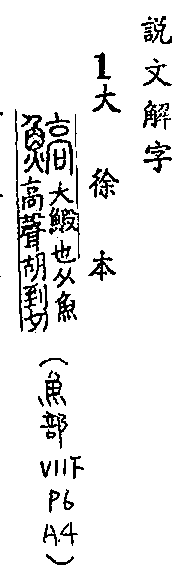 說文解字
1大徐本
鰝大鰕也从魚
高聲胡到切
(魚部
VII下
P6
A.4)